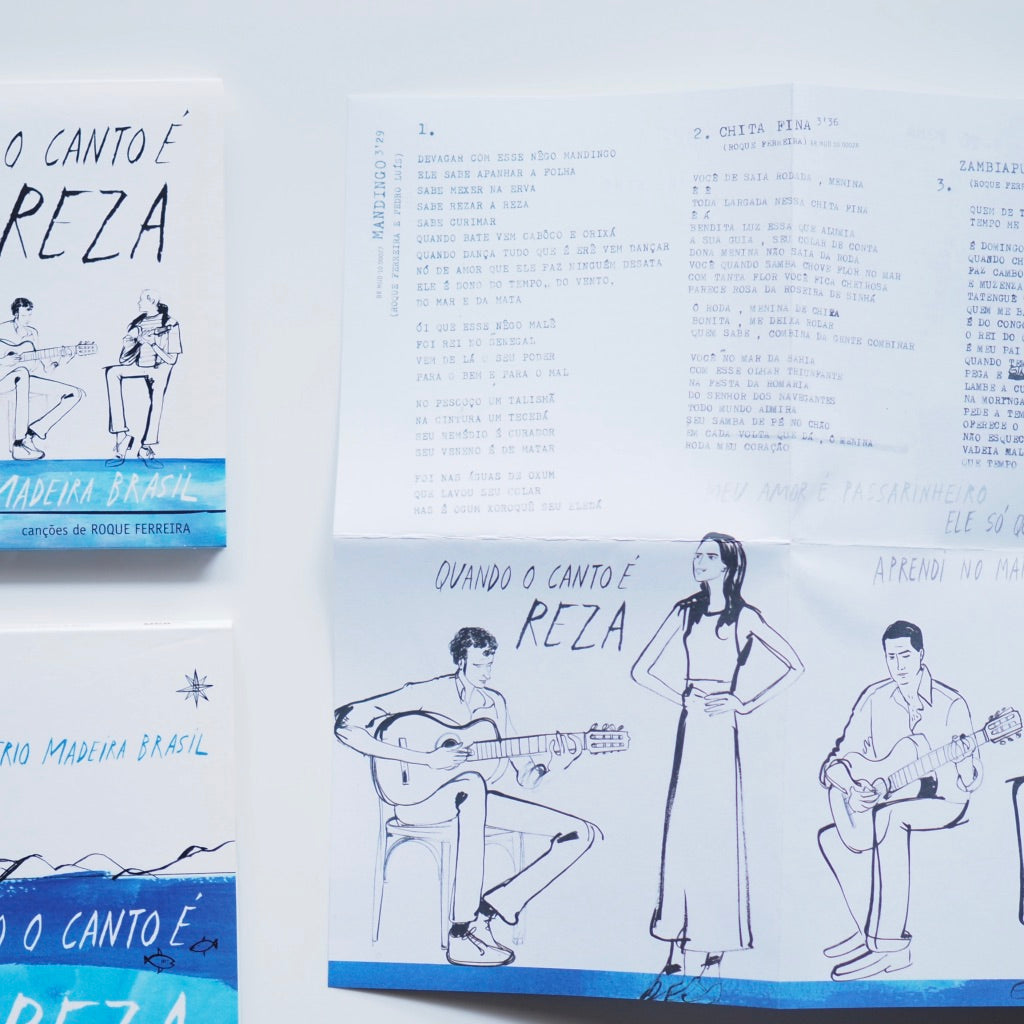 O CANTO É
REZA
MADEIRA BRASIL
canções de ROQUE FERREIRA
TRIO MADEIRA BRASIL
O CANTO É
REZA
1.
MANDINGO 3'29
(ROQUE FERREIRA E PEDRO LUÍS)
DEVAGAR COM ESSE NÊGO MANDINGO
ELE SABE APANHAR A FOLHA
SABE MEXER NA ERVA
SABE REZAR A REZA
SABE CURIMAR
QUANDO BATE VEM CABÔCO E ORIXÁ
QUANDO DANÇA TUDO QUE É ERÊ VEM DANÇAR
NÓ DE AMOR QUE ELE FAZ NINGUÉM DESATA
ELE É DONO DO TEMPO, DO VENTO,
DO MAR E DA MATA
ÓI QUE ESSE NÊGO MALÊ
FOI REI NO SENEGAL
VEM DE LÁ O SEU PODER
PARA O BEM E PARA O MAL
NO PESCOÇO UM TALISMÃ
NA CINTURA UM TECEBÁ
SEU REMÉDIO É CURADOR
SEU VENENO É DE MATAR
FOI NAS ÁGUAS DE OXUM
QUE LAVOU SEU COLAR
MAS É OGUM XOROQUÊ SEU ELEDÁ
2. CHITA FINA 3'36
(ROQUE FERREIRA)
VOCÊ DE SAIA RODADA , MENINA
Ê Ê
TODA LARGADA NESSA CHITA FINA
Ê Á
BENDITA LUZ ESSA QUE ALUMIA
A SUA GUIA , SEU COLAR DE CONTA
DONA MENINA NÃO SAIA DA RODA
VOCÊ QUANDO SAMBA CHOVE FLOR NO MAR
COM TANTA FLOR VOCÊ FICA CHEIROSA
PARECE ROSA DA ROSEIRA DE SINHÁ
Ô RODA , MENINA DE CHITA
BONITA , ME DEIXA RODAR
QUEM SABE , COMBINA DA GENTE COMBINAR
VOCÊ NO MAR DA BAHIA
COM ESSE OLHAR TRIUNFANTE
NA FESTA DA ROMARIA
DO SENHOR DOS NAVEGANTES
TODO MUNDO ADMIRA
SEU SAMBA DE PÉ NO CHÃO
EM CADA VOLTA QUE DÁ , Ô MENINA
RODA MEU CORAÇÃO
3. ZAMBIAPU
(ROQUE FERR
QUEM DE T
TEMPO ME
É DOMINGO
QUANDO CH
FAZ CAMBO
E MUZENZA
TATENGUÊ
QUEM ME B
É DO CONGO
O REI DO C
É MEU PAI
QUANDO TE
PEGA E
LAMBE A CU
NA MORINGA
PEDE A TEM
OFERECE O
NÃO ESQUEC
VADEIA MAL
QUE TEMPO
MEU AMOR É PASSARINHEIRO
ELE SÓ Q
APRENDI NO MA
QUANDO O CANTO É
REZA